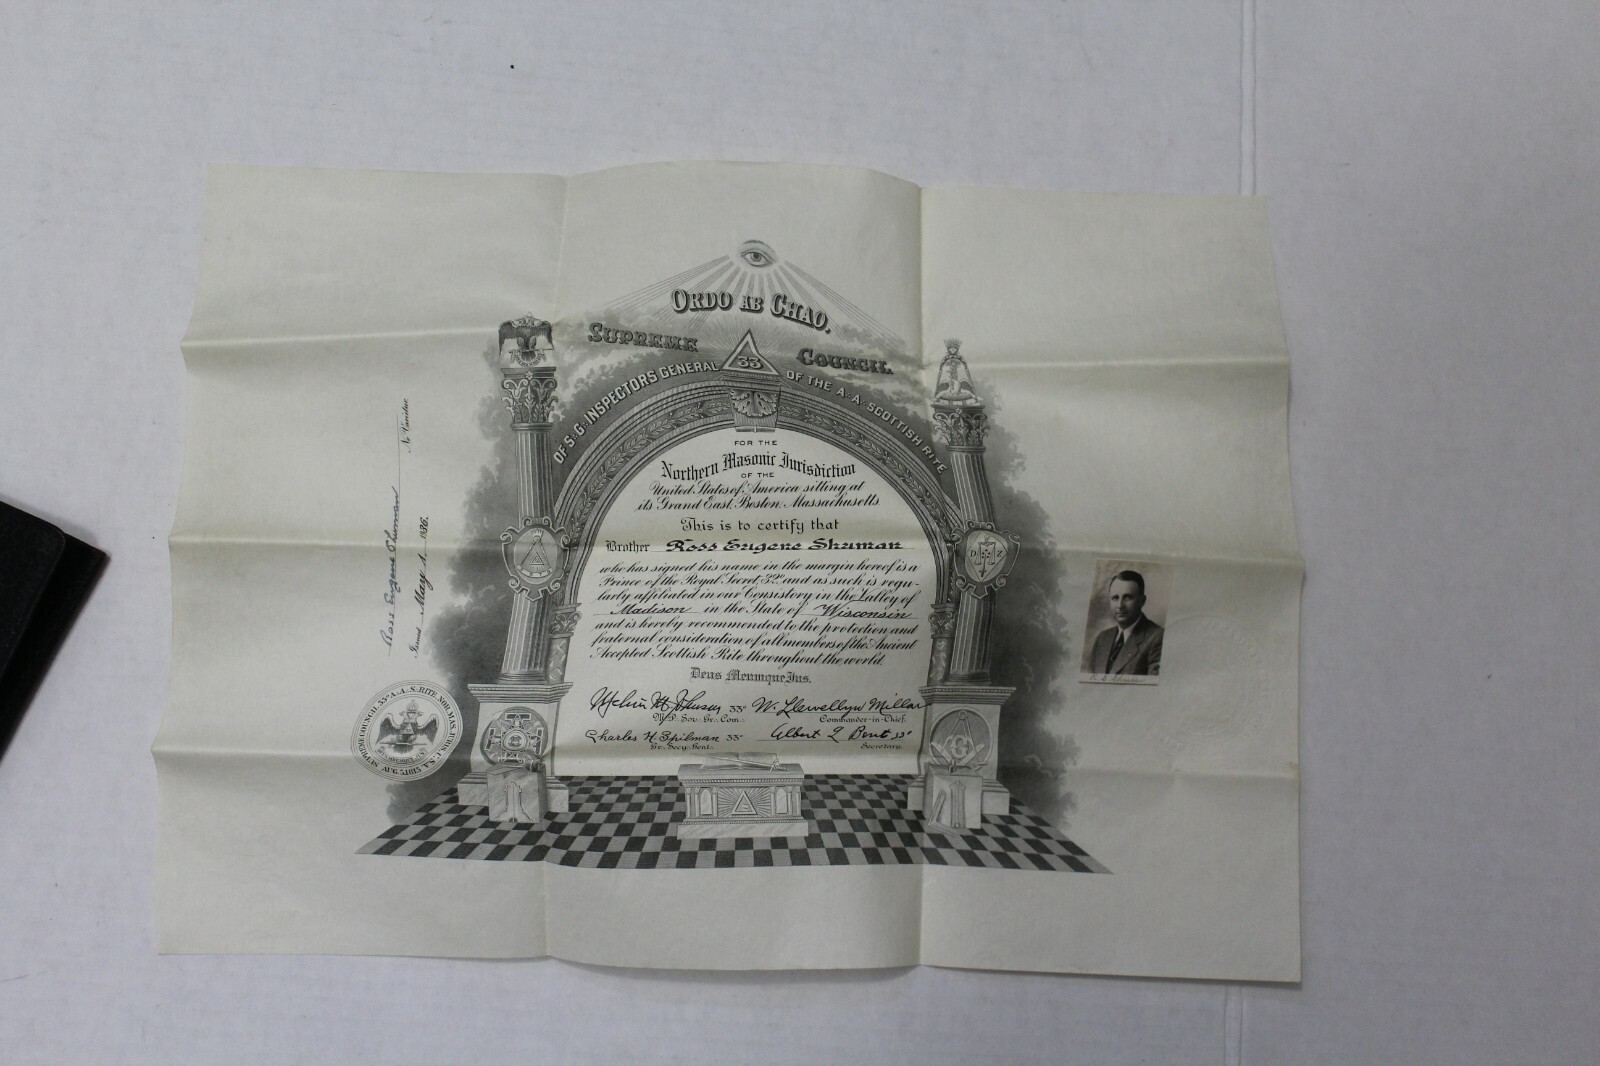 ORDO AB CHAO.
SUPREME COUNCIL
33
OF S∴G∴INSPECTORS GENERAL OF THE A∴A∴SCOTTISH RITE
FOR THE
Northern Masonic Jurisdiction
OF THE
United States of America sitting at
its Grand East, Boston, Massachusetts.
This is to certify that
Brother Ross Eugene Shuman
who has signed his name in the margin hereof is a
Prince of the Royal Secret, 32° and as such is regu-
larly affiliated in our Consistory in the Valley of
Madison in the State of Wisconsin
and is hereby recommended to the protection and
fraternal consideration of all members of the Ancient
Accepted Scottish Rite throughout the world.
Deus Meumque Jus.
Melvin M Johnson 33°
M∴P∴Sov∴Gr∴Com∴
W. Llewellyn Millar
Commander-in-Chief.
Charles H. Spilman 33°
Gr∴Secy∴Genl∴
Albert L Bent 33°
Secretary.
D Z
G
Ne Varietur
Ross Eugene Shuman
Issued May 1 1936.
SUPREME COUNCIL 33° A.A.S. RITE. NOR. MAS. JURIS. U.S.A.
AUG. 5, 1813